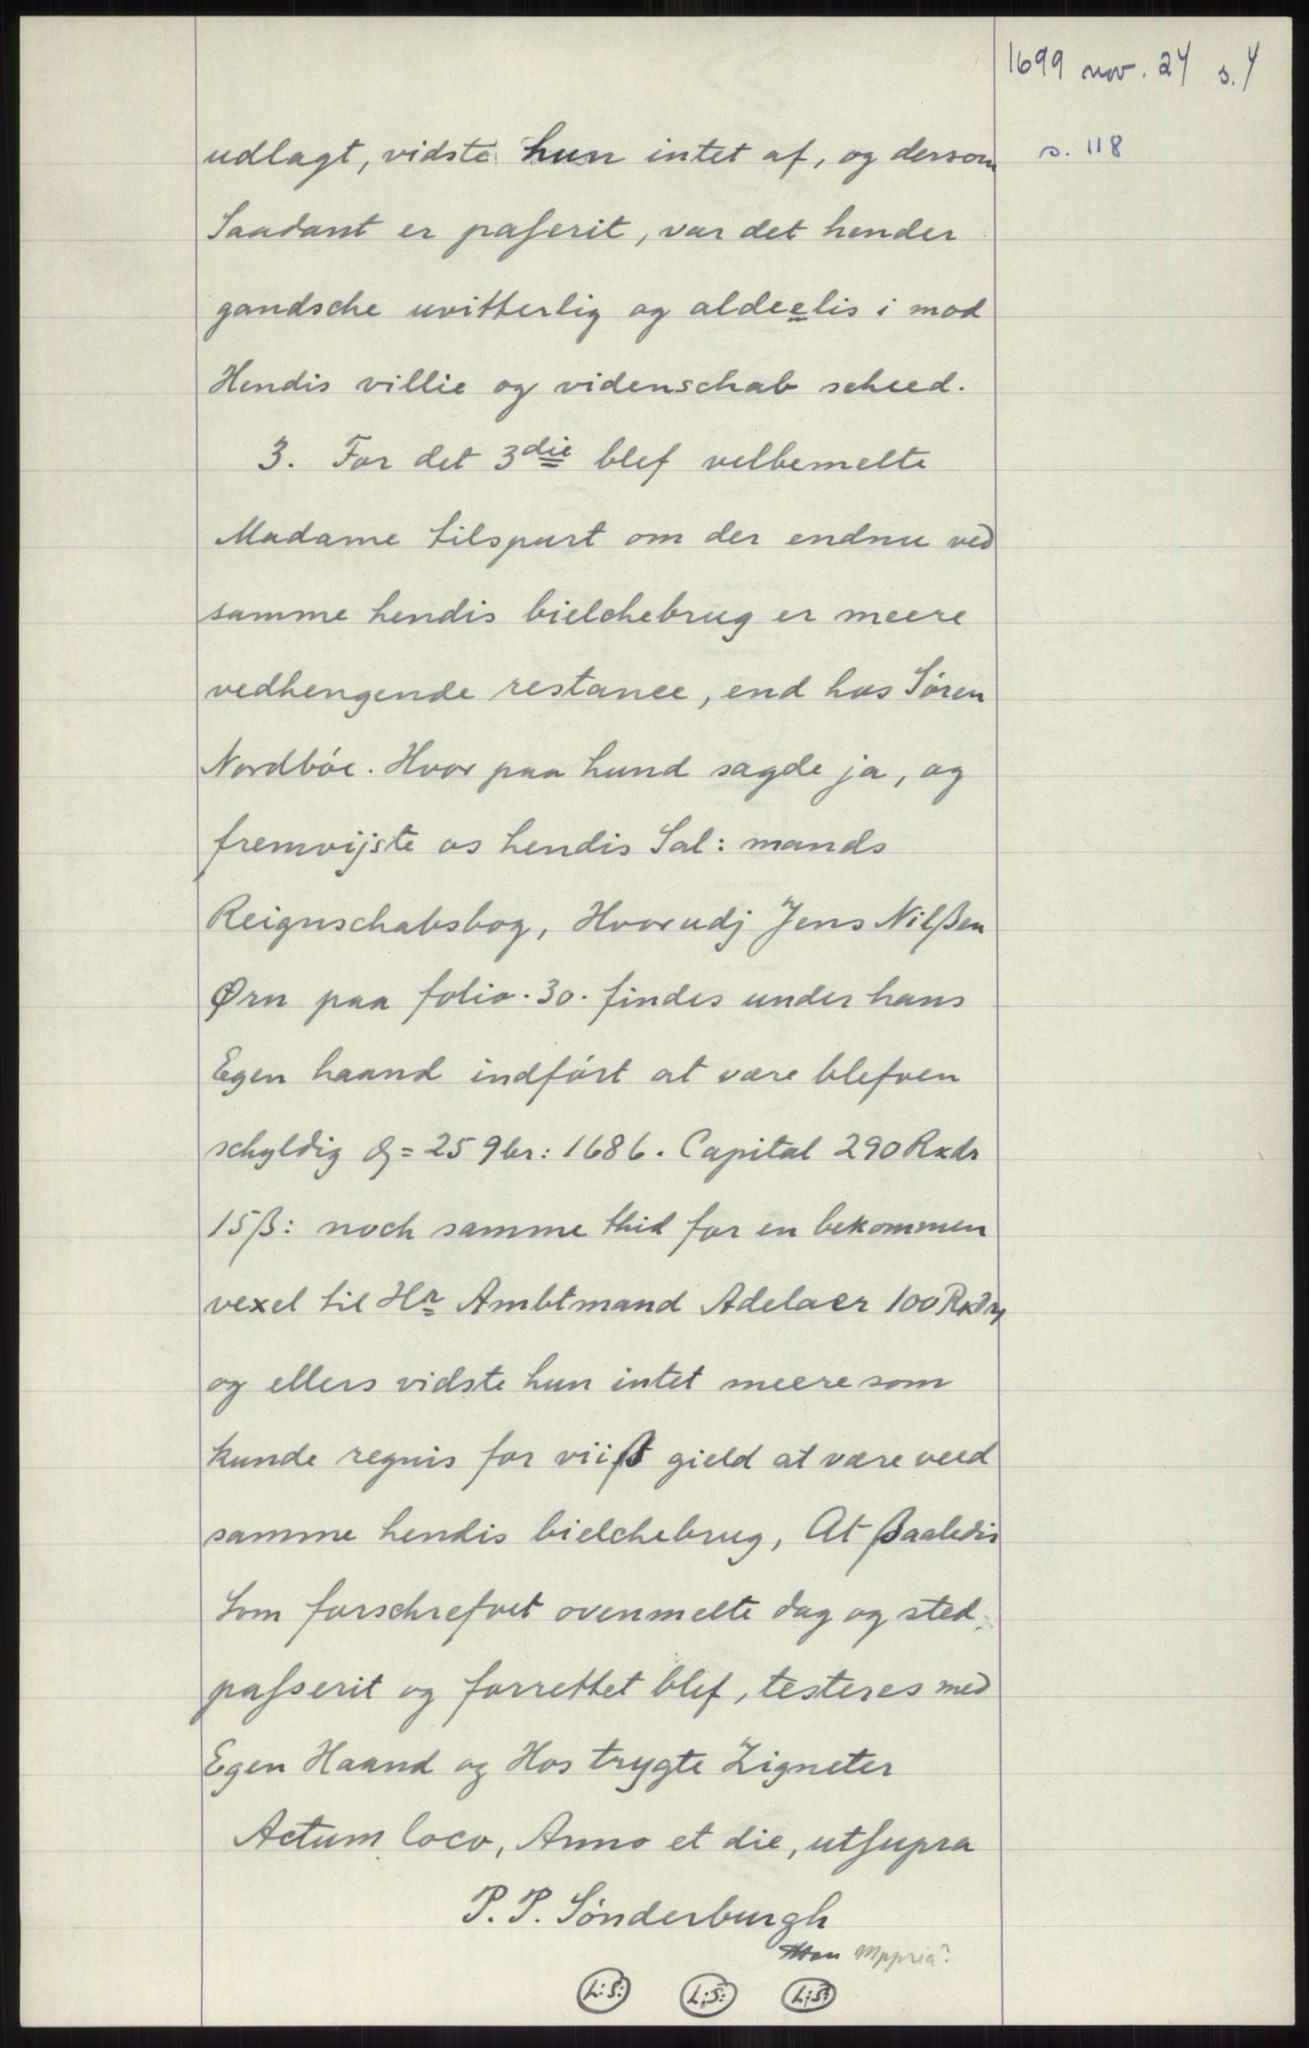 1699 nov. 24 s. 4
s. 118
udlagt, vidste hun intet af, og dersom
Saadant er paserit, var det hender
gandsche uvitterlig og aldeelis i mod
Hendis villie og videnschab scheed.
3. For det 3die blef velbemelte
Madame tilspurt om der endnu ved
samme hendis bielchebrug er meere
vedhengende restance, end hos Søren
Nordbøe. Hvor paa hund sagde ja, og
fremvijste os hendis Sal: mands
Reignschabsbog, Hvorudj Jens Nilßen
Ørn paa folio. 30. findes under hans
Egen haand indført at være blefven
schyldig d = 25 9br: 1686. Capital 290 Rxdr
15 ß: noch samme thid for en bekommen
vexel til Hr Ambtmand Adelaer 100 Rxdr,
og ellers vidste hun intet meere som
kunde regnis for viiß gield at være veed
samme hendis bielchebrug, At ßaaledis
som forschrefvet ovenmelte dag og sted
passerit og forrettet blef, testeres med
Egen Haand og Hos trygte Zigneter
Actum loco, Anno et die, utsupra
P. P. Sönderburgh
Mppria?
L:S: L:S: L:S: